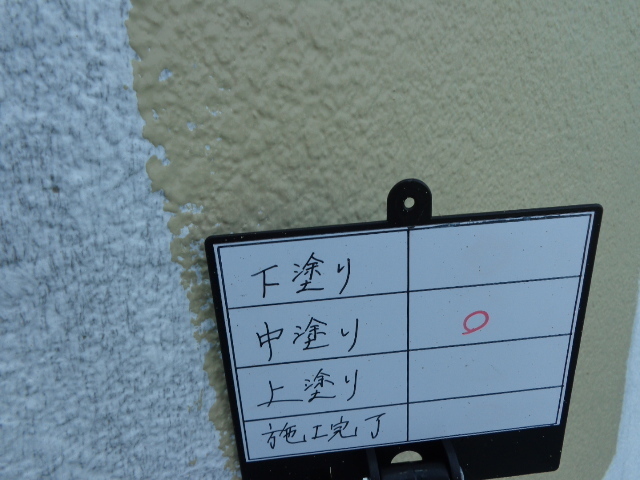 下塗り
中塗り ○
上塗り
施工完了